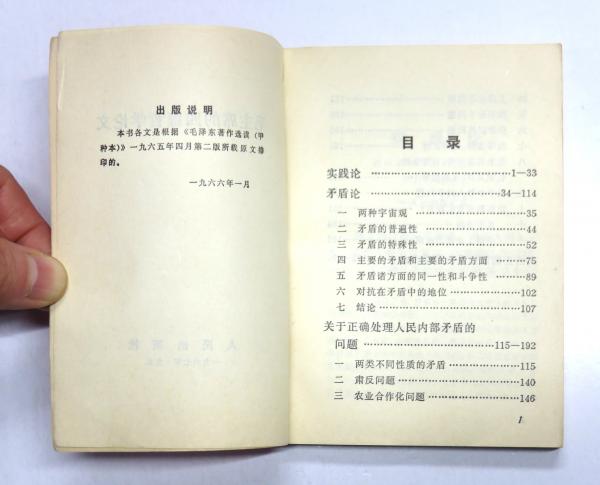 出版说明
本书各文是根据《毛泽东著作选读（甲
种本）》一九六五年四月第二版所载原文排
印的。
一九六六年一月
目录
实践论 …………………………………1—33
矛盾论 …………………………………34—114
一 两种宇宙观 …………………………35
二 矛盾的普遍性 ………………………44
三 矛盾的特殊性 ………………………52
四 主要的矛盾和主要的矛盾方面 ………75
五 矛盾诸方面的同一性和斗争性 ………89
六 对抗在矛盾中的地位 ………………102
七 结论 …………………………………107
关于正确处理人民内部矛盾的
问题 …………………………………115—192
一 两类不同性质的矛盾 ………………115
二 肃反问题 ……………………………140
三 农业合作化问题 ……………………146
1